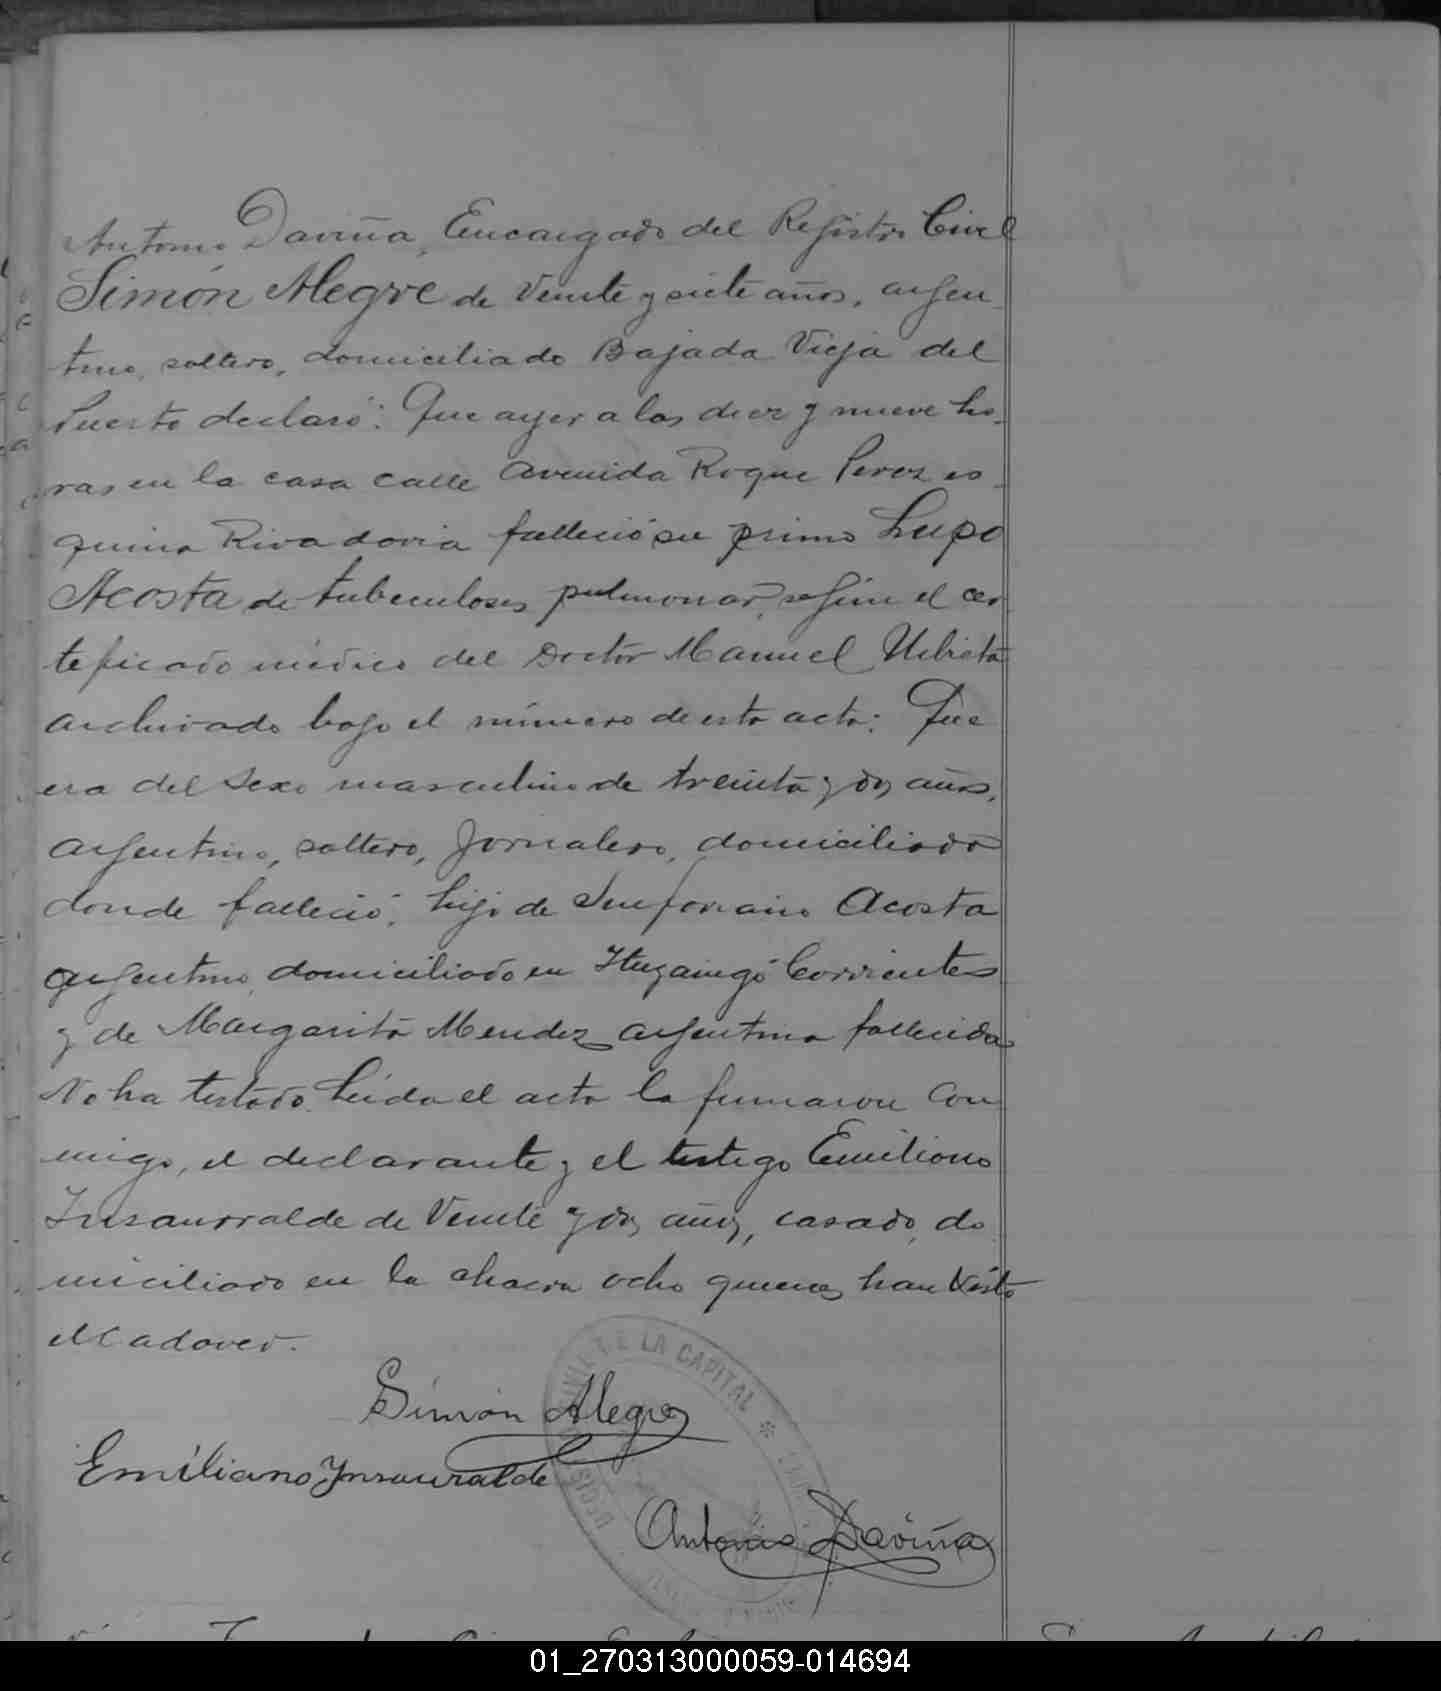 Antonio Daviña, Encargado del Registro Civil
Simón Alegre de veinte y siete años, argen
tino, soltero, domiciliado Bajada Vieja del
Puerto declaró: Que ayer a las diez y nueve ho-
ras en la casa calle Avenida Roque Perez es-
quina Rivadavia falleció su primo Lupo
Acosta de tuberculosis pulmonar, según el cer
tificado médico del Doctor Manuel Urbieta
archivado bajo el número de esta acta: Que
era del sexo masculino de treinta y dos años,
argentino, soltero, jornalero, domiciliado
donde falleció, hijo de Sinforiano Acosta
argentino, domiciliado en Ituzaingó Corrientes
y de Margarita Mendez argentina fallecida
No ha testado. Leida el acta la firmaron con
migo, el declarante y el testigo Emiliano
Insaurralde de veinte y dos años, casado, do
miciliado en la chacra ocho quienes han visto
el cadaver.
DE LA CAPITAL *
Simón Alegre
Emiliano Ynsaurralde
Antonio Daviña
01_270313000059-014694